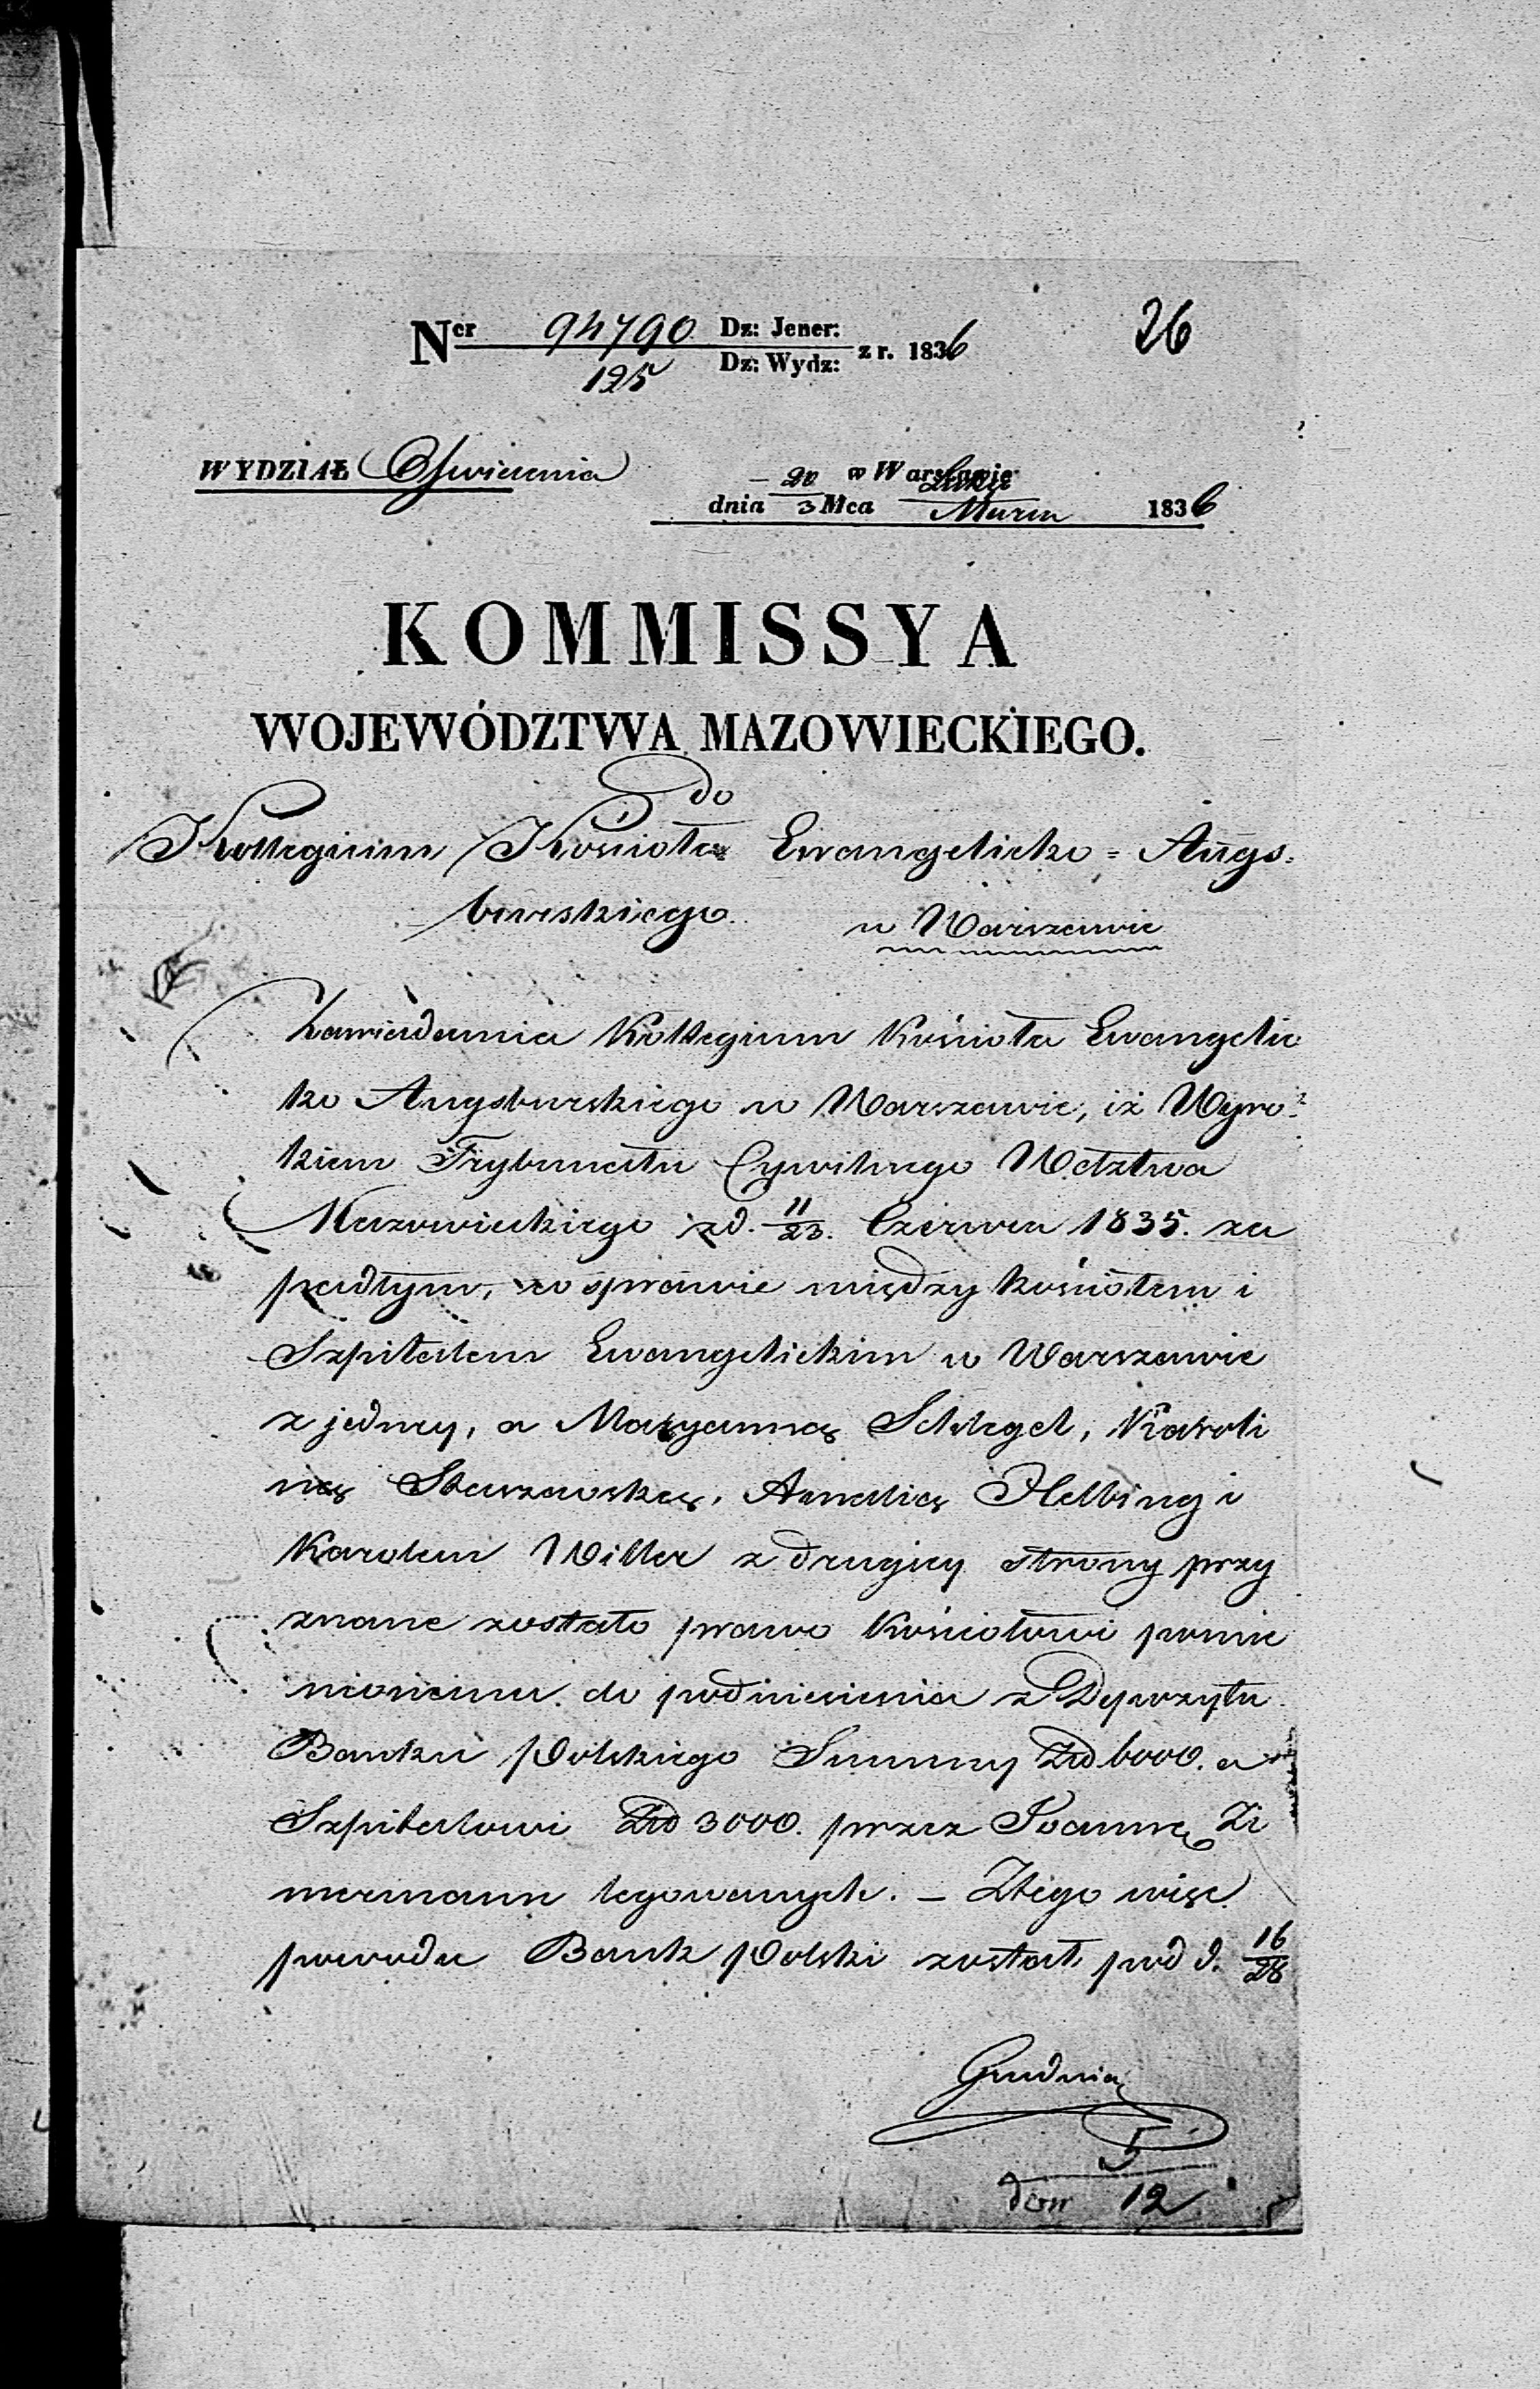 Ner 94790 Dz: Jener: z r. 1836
125 Dz: Wydz:
26
WYDZIAŁ Oświecenia
w Warszawie
dnia 20/3 Mca Marca 1836
KOMMISSYA
WOJEWÓDZTWA MAZOWIECKIEGO.
do
Kollegium Kościoła Ewangelicko = Augs=
burskiego
w Warszawie
Zawiadamia Kollegium Kościoła Ewangelic
ko Augsburskiego w Warszawie, iż Wyro=
kiem Trybunału Cywilnego Wdztwa
Mazowieckiego z d. 11/23. Czerwca 1835. za
padłym, w sprawie między kościołem i
Szpitalem Ewangelickim w Warszawie
z jedney, a Maryanną Schlegel, Karoli
ną Staszewską, Amalią Helbing i
Karolem Willer z drugiey strony przy
znane zostało prawo Kościołowi pomie
nionemu do podniesienia z Depozytu
Banku Polskiego Summy Złd 6000. a
Szpitalowi Złd 3000. przez Joannę Zi
mermann legowanych. – Ztego więc
powodu Bank Polski został pod d. 16/28
Grudnia
5
12